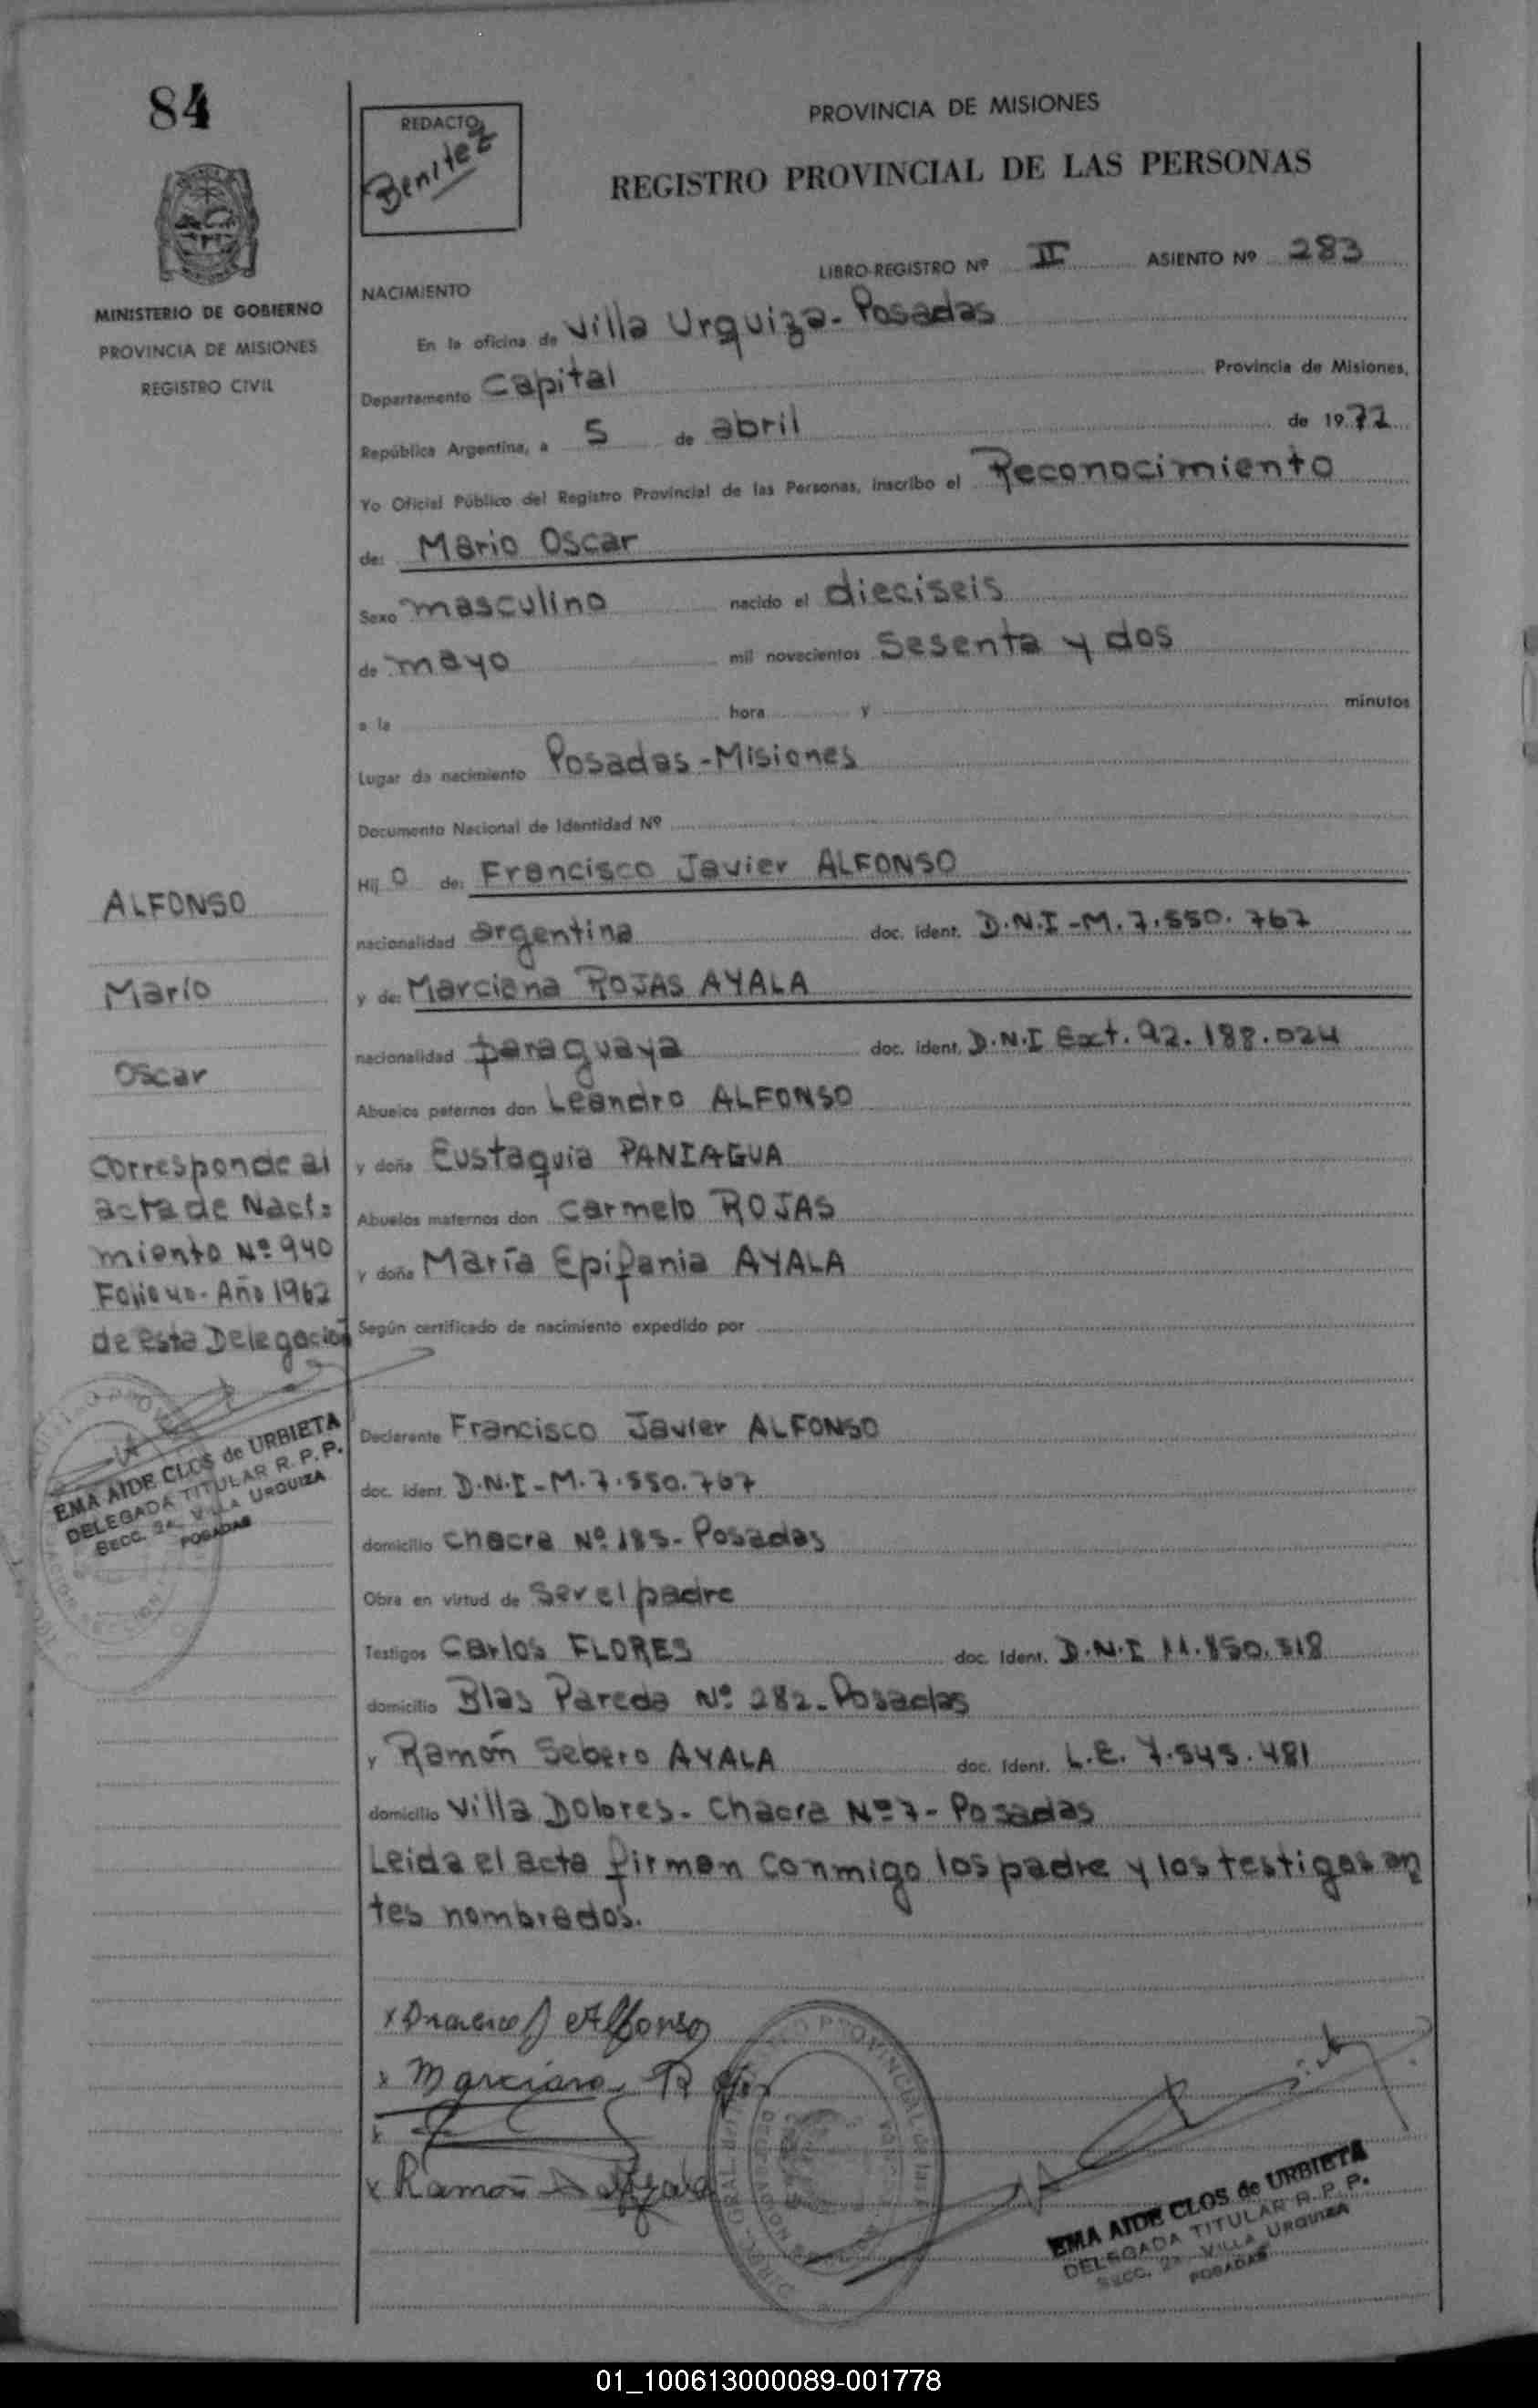 84
REDACTO
Benitez
PROVINCIA DE MISIONES
REGISTRO PROVINCIAL DE LAS PERSONAS
LIBRO-REGISTRO Nº II ASIENTO Nº 283
MINISTERIO DE GOBIERNO
PROVINCIA DE MISIONES
REGISTRO CIVIL
NACIMIENTO
En la oficina de Villa Urquiza - Posadas
Departamento Capital Provincia de Misiones,
República Argentina, a 5 de abril de 1972
Yo Oficial Público del Registro Provincial de las Personas, inscribo el Reconocimiento
de: Mario Oscar
Sexo masculino nacido el dieciseis
de mayo mil novecientos Sesenta y dos
a la hora y minutos
Lugar de nacimiento Posadas - Misiones
Documento Nacional de Identidad Nº
Hij o de: Francisco Javier ALFONSO
nacionalidad argentina doc. ident. D.N.I - M. 7.550.767
y de: Marciana ROJAS AYALA
nacionalidad paraguaya doc. ident. D.N.I Ext. 92.188.024
Abuelos paternos don Leandro ALFONSO
y doña Eustaquia PANIAGUA
Abuelos maternos don Carmelo ROJAS
y doña María Epifania AYALA
Según certificado de nacimiento expedido por
ALFONSO
Mario
Oscar
Corresponde al
acta de Naci=
miento Nº 940
Folio 40 - Año 1962
de esta Delegación
EMA AIDE CLOS de URBIETA
DELEGADA TITULAR R. P. P.
SECC. 2ª VILLA URQUIZA
POSADAS
Declarante Francisco Javier ALFONSO
doc. ident. D.N.I - M. 7.550.767
domicilio Chacra Nº 185 - Posadas
Obra en virtud de Ser el padre
Testigos Carlos FLORES doc. Ident. D.N.I 11.850.318
domicilio Blas Pareda Nº 282 - Posadas
y Ramón Sebero AYALA doc. Ident. L.E. 7.545.481
domicilio Villa Dolores - Chacra Nº 7 - Posadas
Leida el acta firman conmigo los padre y los testigos an
tes nombrados.
x Alfonso
x Marciana R
x
x Ramón Ayala
EMA AIDE CLOS de URBIETA
DELEGADA TITULAR R. P. P.
SECC. 2ª VILLA URQUIZA
POSADAS
01_100613000089-001778